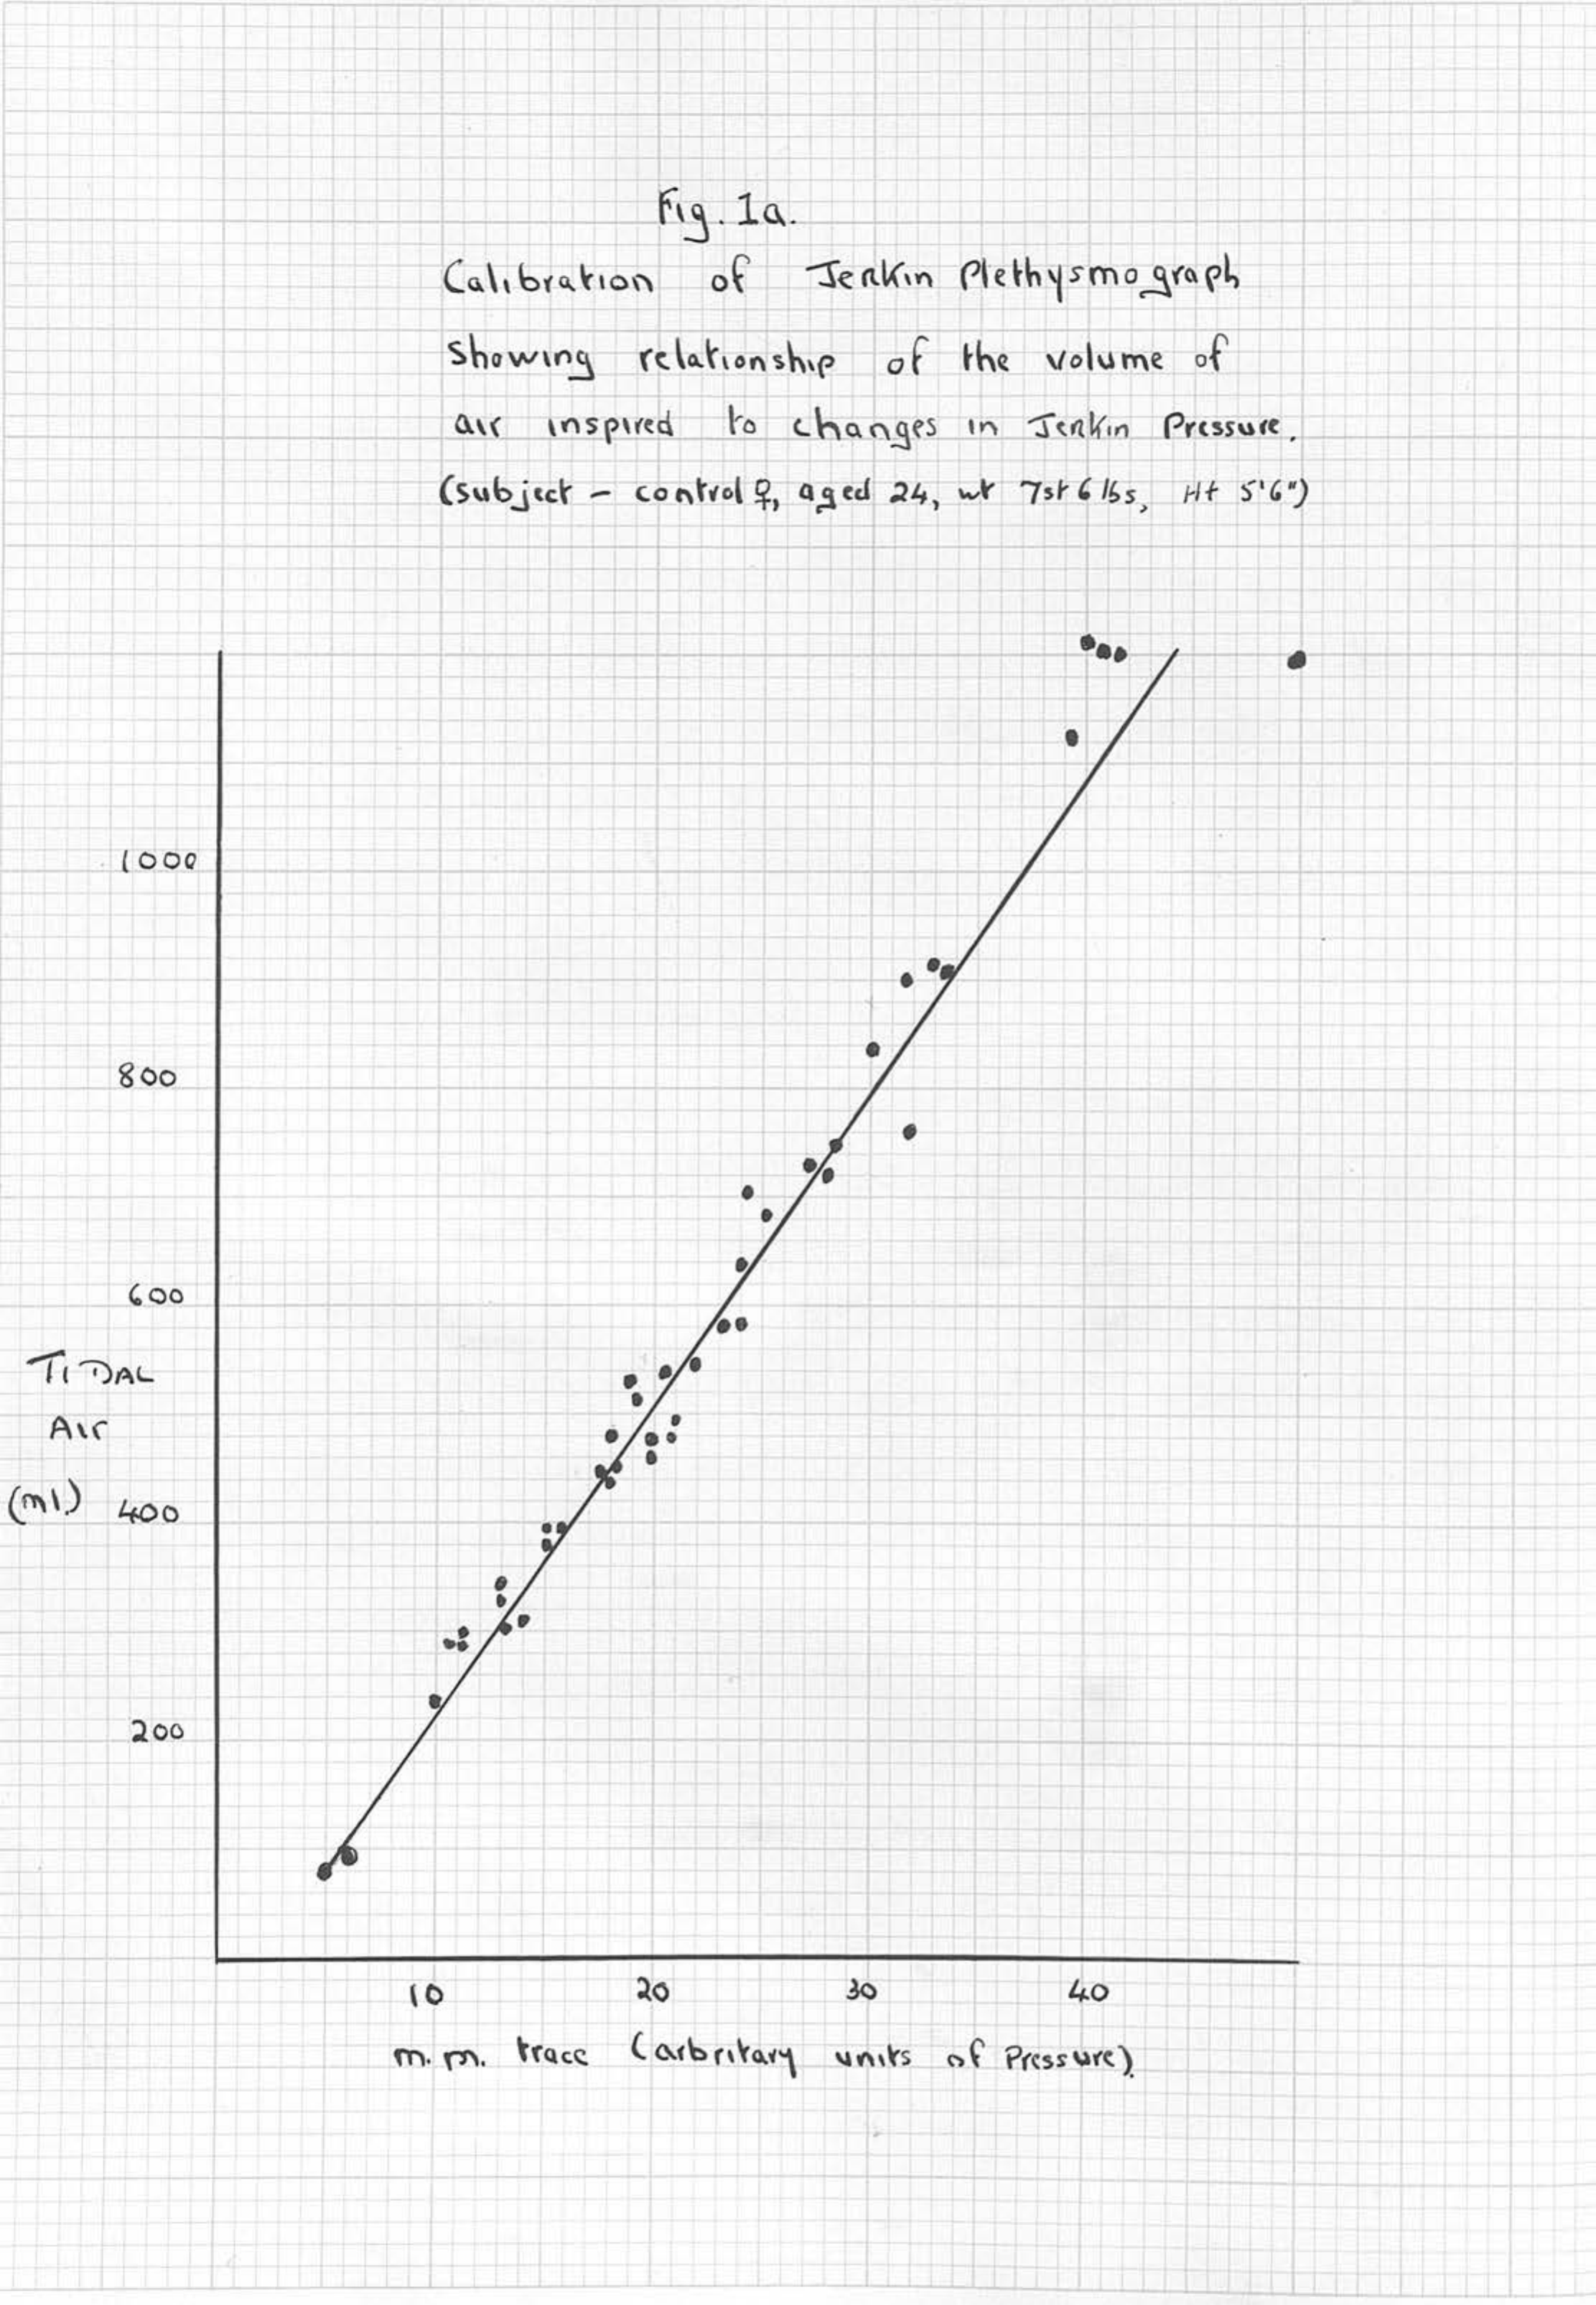 Fig. 1a.
Calibration of Jerkin Plethysmograph
Showing relationship of the volume of
air inspired to changes in Jerkin Pressure.
(subject - control ♀, aged 24, wt 7st 6 lbs, Ht 5'6")
1000
800
600
TIDAL
Air
(ml.)
400
200
10 20 30 40
m.m. trace (arbritary units of Pressure).